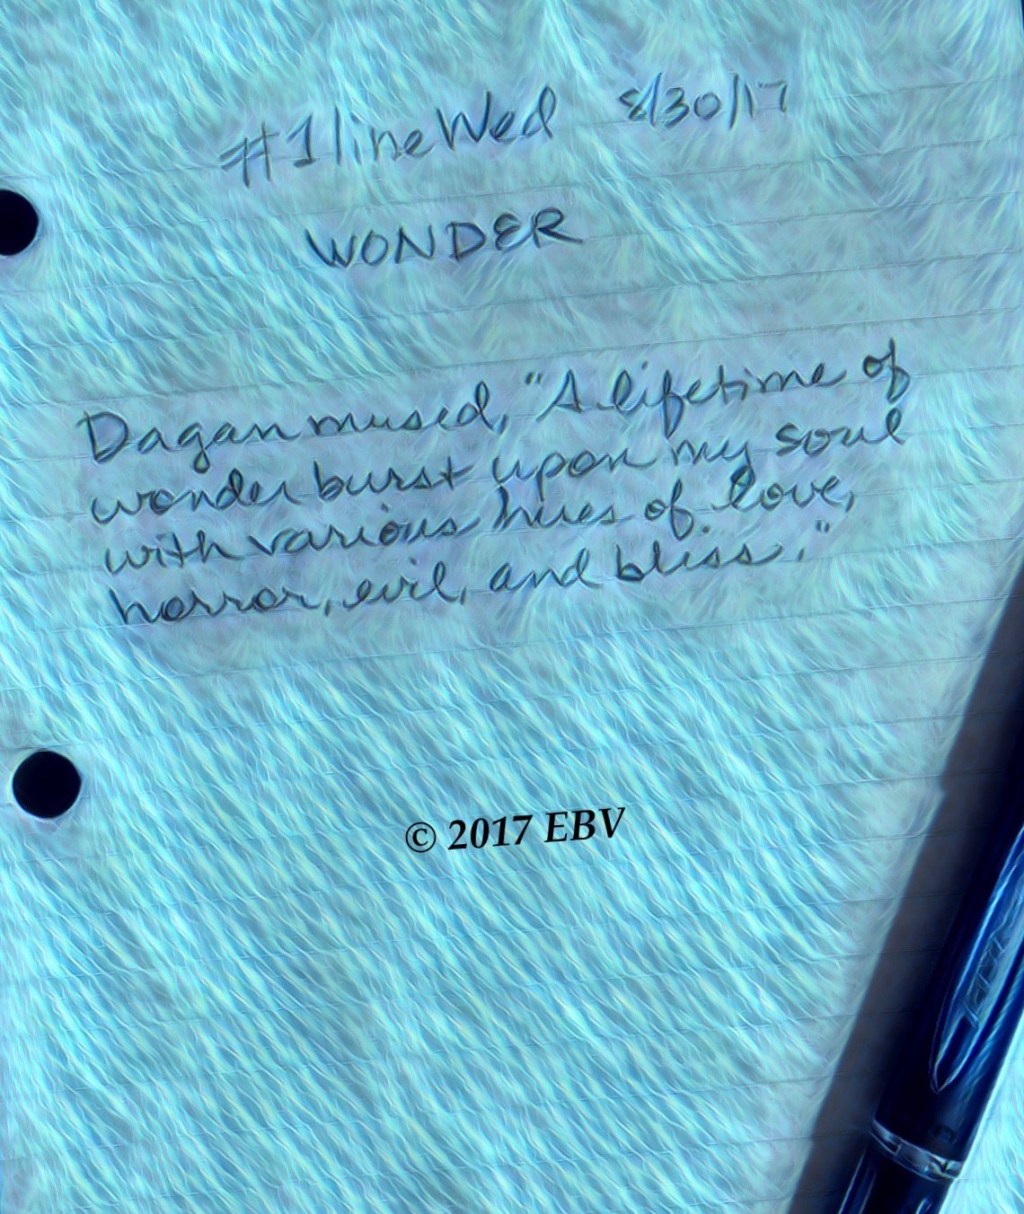 #1lineWed 8/30/17
WONDER
Dagan mused, "A lifetime of
wonder burst upon my soul
with various hues of love,
horror, evil, and bliss."
© 2017 EBV